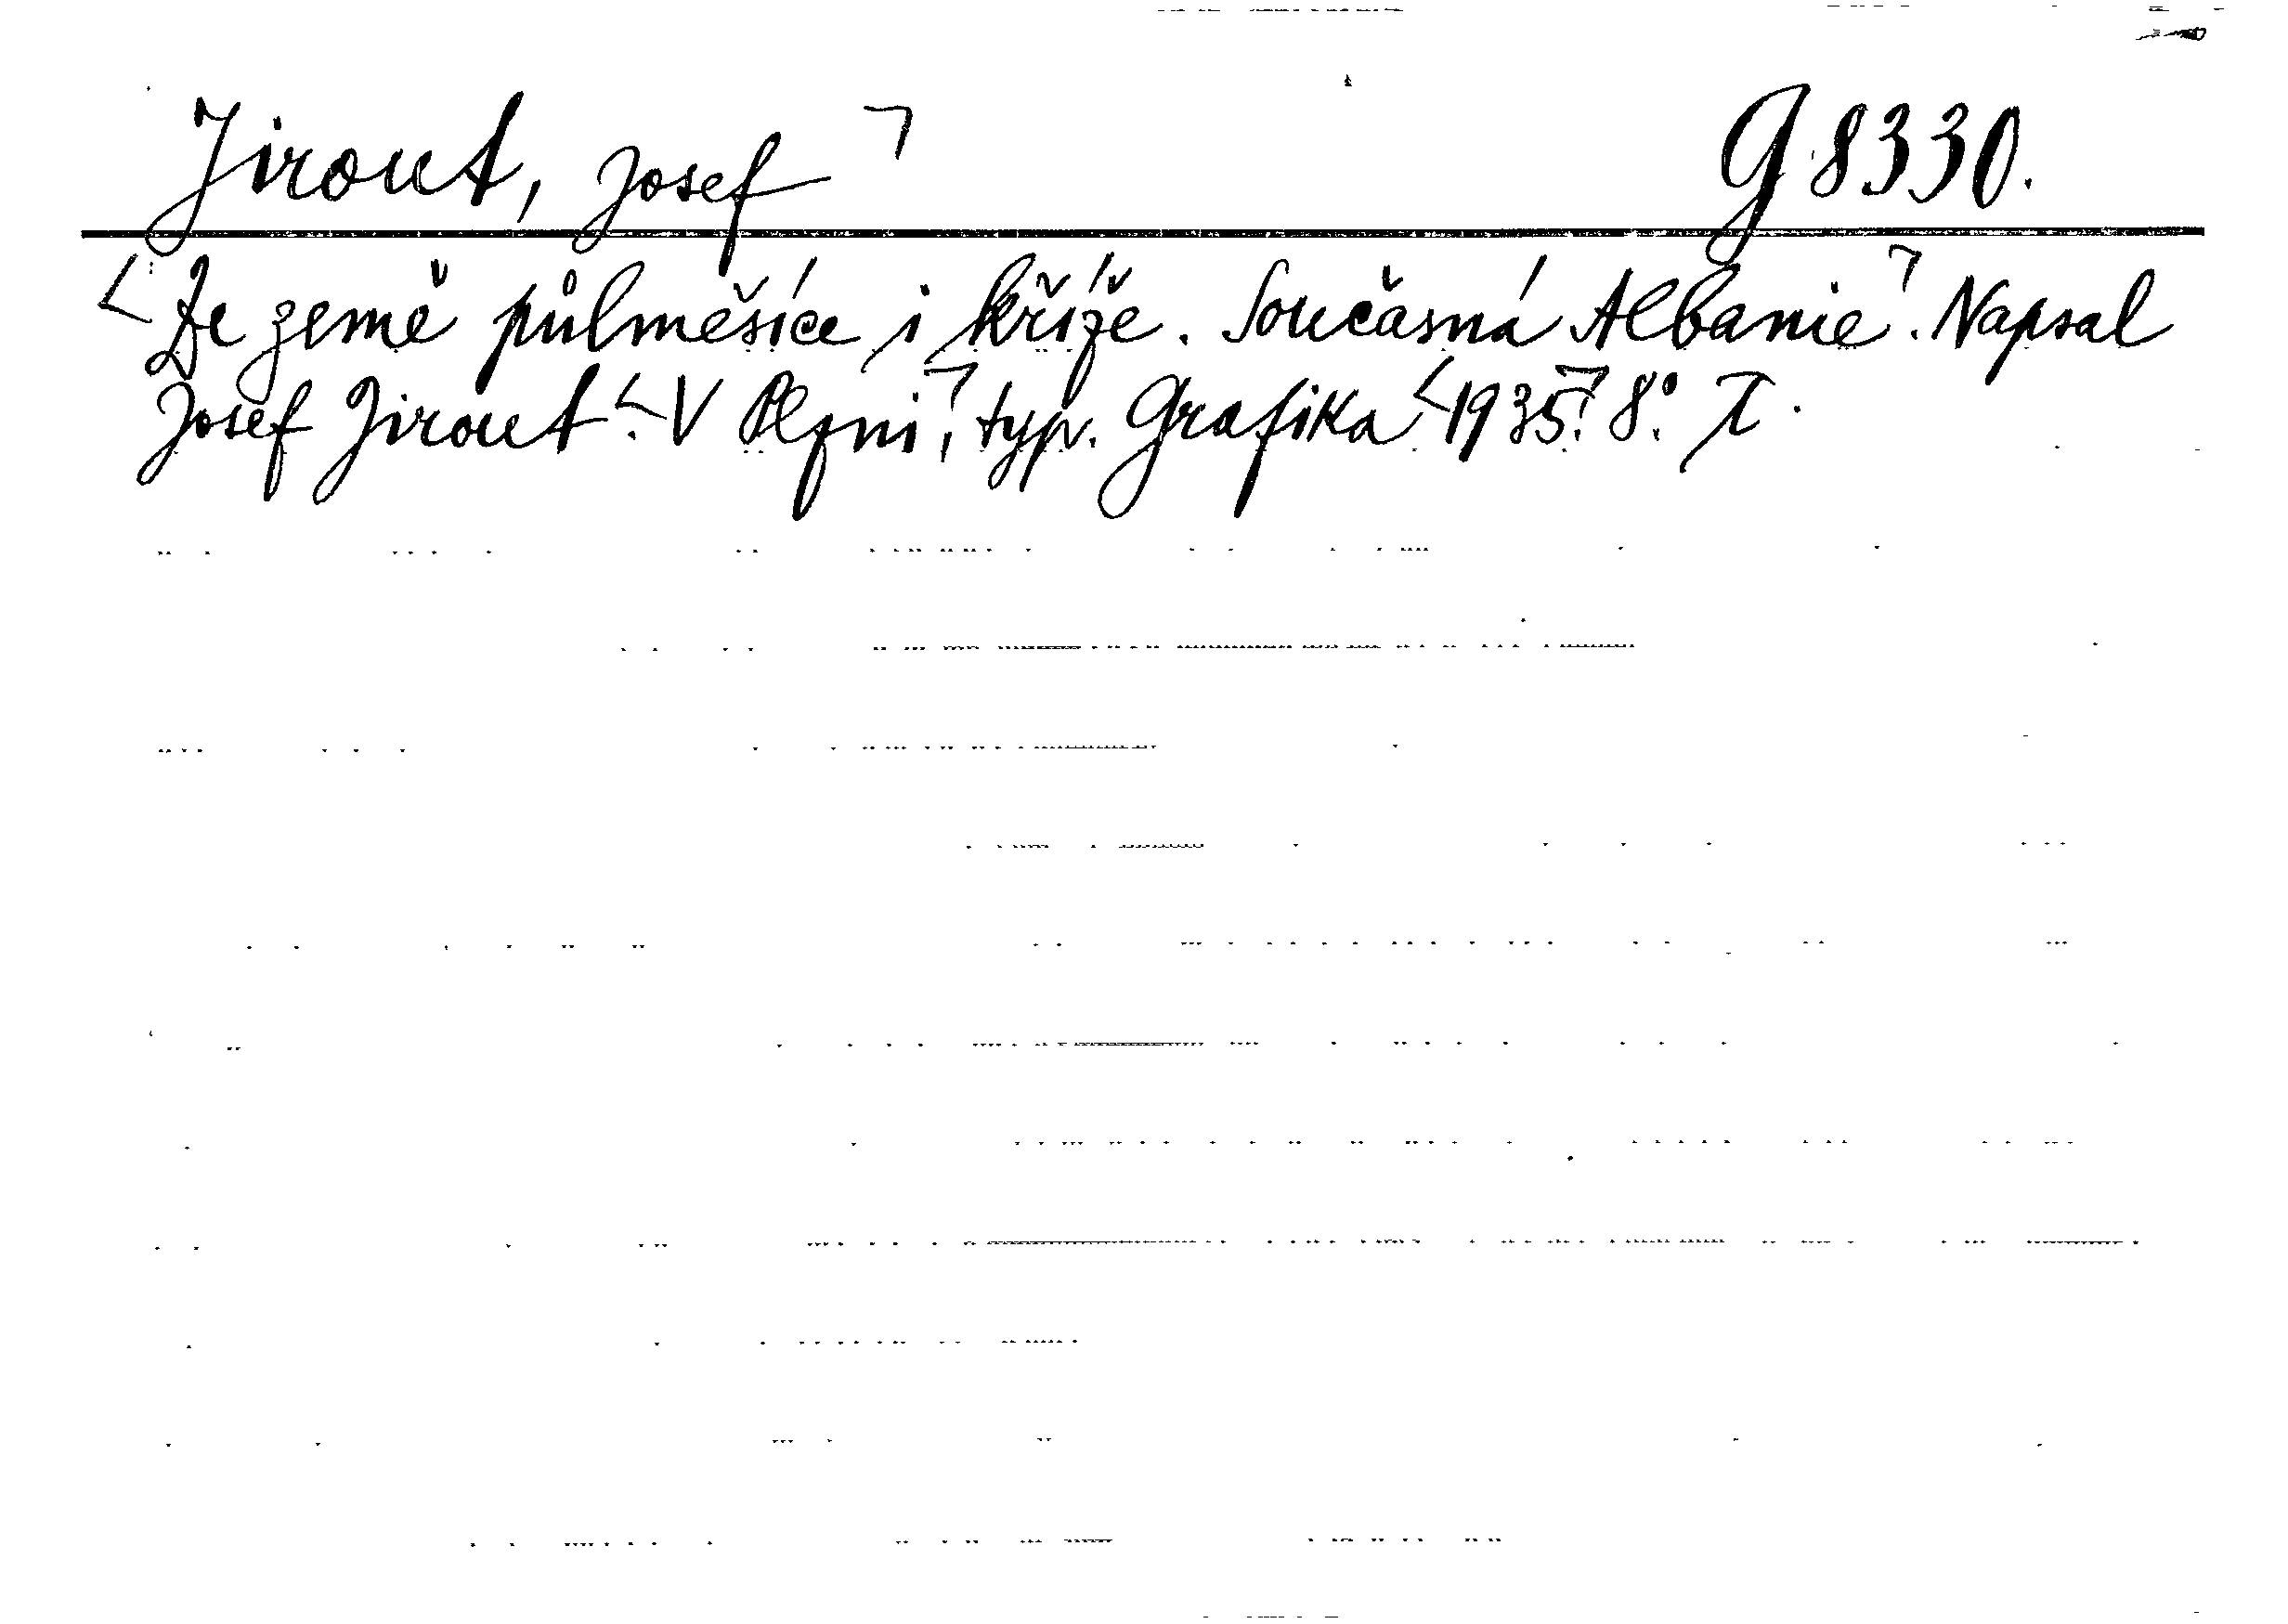 Jirout, Josef ┐ G 8330.
< Ze země půlměsíce i kříže. Současná Albanie┐. Napsal
Josef Jirout. < V Plzni┐, typ. Grafika < 1935┐. 8°.